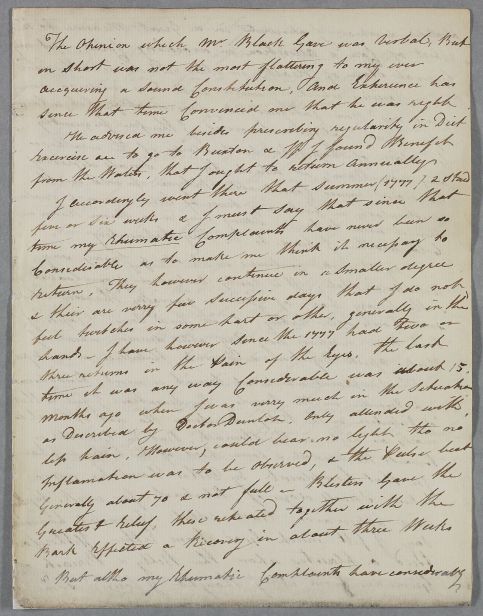 The Opinion which Mr Black Gave was Verbal, But
in Short was not the most flattering to my ever
acquiering a sound Constitution, And Experience has
since That time Convinced me that he was right
He advised me besides prescribing regularity in Diet
Exercise &c to go to Buxton & If I found Benefit
from the Waters, that I ought to return Annually
I accordingly went there that Summer (1777) & Staid
five or Six weeks & I must say that since that
time my Rheumatic Complaints have never been so
Considerable as to make me think it necessary to
return. They however continue in a smaller degree
& their are verry few Successive days that I do not
feel twitches in some part or other, generally in the
hands – I have however since the 1777 had two or
three returns in the Pain of the Eyes. The last
time it was any way Considerable was about 15
Months ago when I was verry much in the Situation
as Described by Doctor Dunlop. Only attended with
less pain. However, could bear no light, tho no
Inflamation was to be observed, & the Pulse beat
Generally about 70 & not full – Blisters Gave the
Greatest Relief, these repeated together with the
Bark Effected a Recovery in about three Weeks
But altho my Rheumatic Complaints have considerably